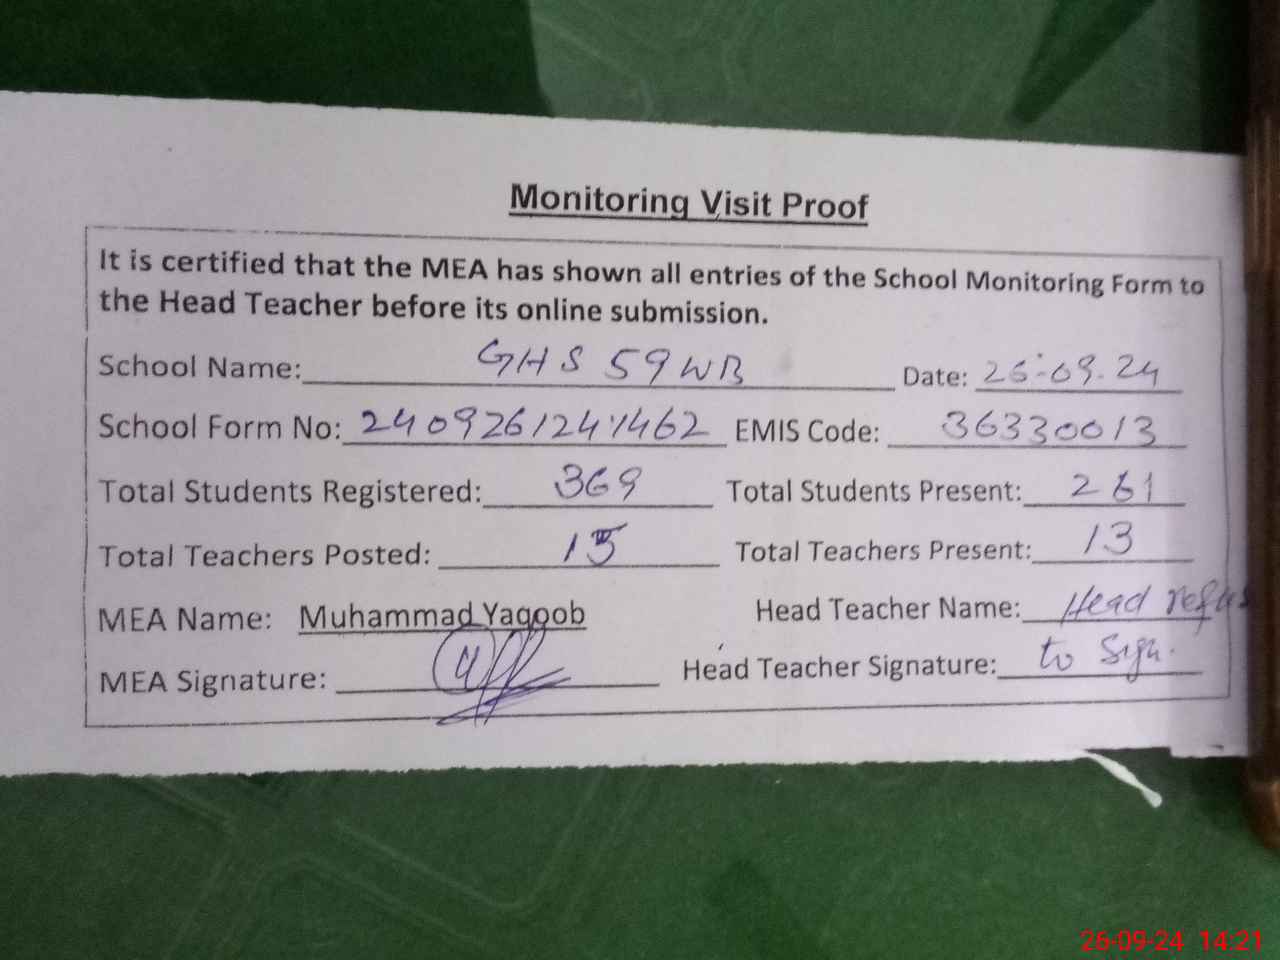 Monitoring Visit Proof
It is certified that the MEA has shown all entries of the School Monitoring Form to
the Head Teacher before its online submission.
School Name: GHS 59 WB Date: 26-09-24
School Form No: EMIS Code: 36330013
Total Students Registered: 369 Total Students Present: 261
Total Teachers Posted: 15 Total Teachers Present: 13
MEA Name: Muhammad Yaqoob Head Teacher Name: Head refus
MEA Signature: Head Teacher Signature: to Sign.
26-09-24 14:21